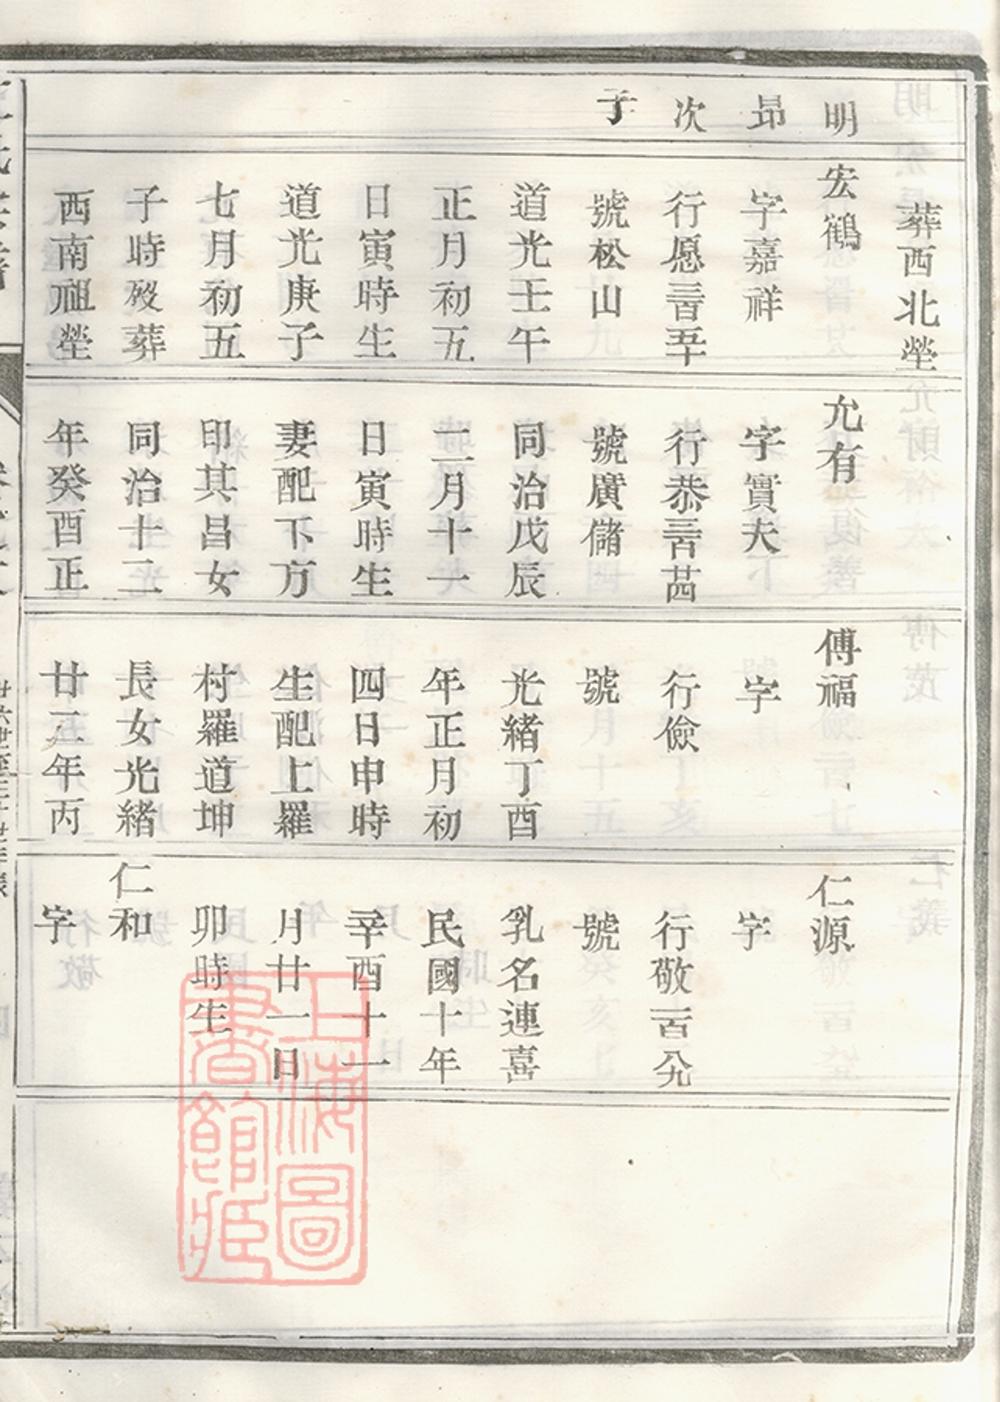 明昻次子
葬西北塋
宏鶴
字嘉祥
行愿
號松山
道光壬午
正月初五
日寅時生
道光庚子
七月初五
子時歿葬
西南祖塋
允有
字實夫
行恭
號廣儲
同治戊辰
二月十一
日寅時生
妻配下方
印其昌女
同治十二
年癸酉正
傳福
字
行儉
號
光緒丁酉
年正月初
四日申時
生配上羅
村羅道坤
長女光緒
廿二年丙
仁源
字
行敬
號
乳名連喜
民國十年
辛酉十一
月廿一日
卯時生
仁和
字
上海圖書館藏